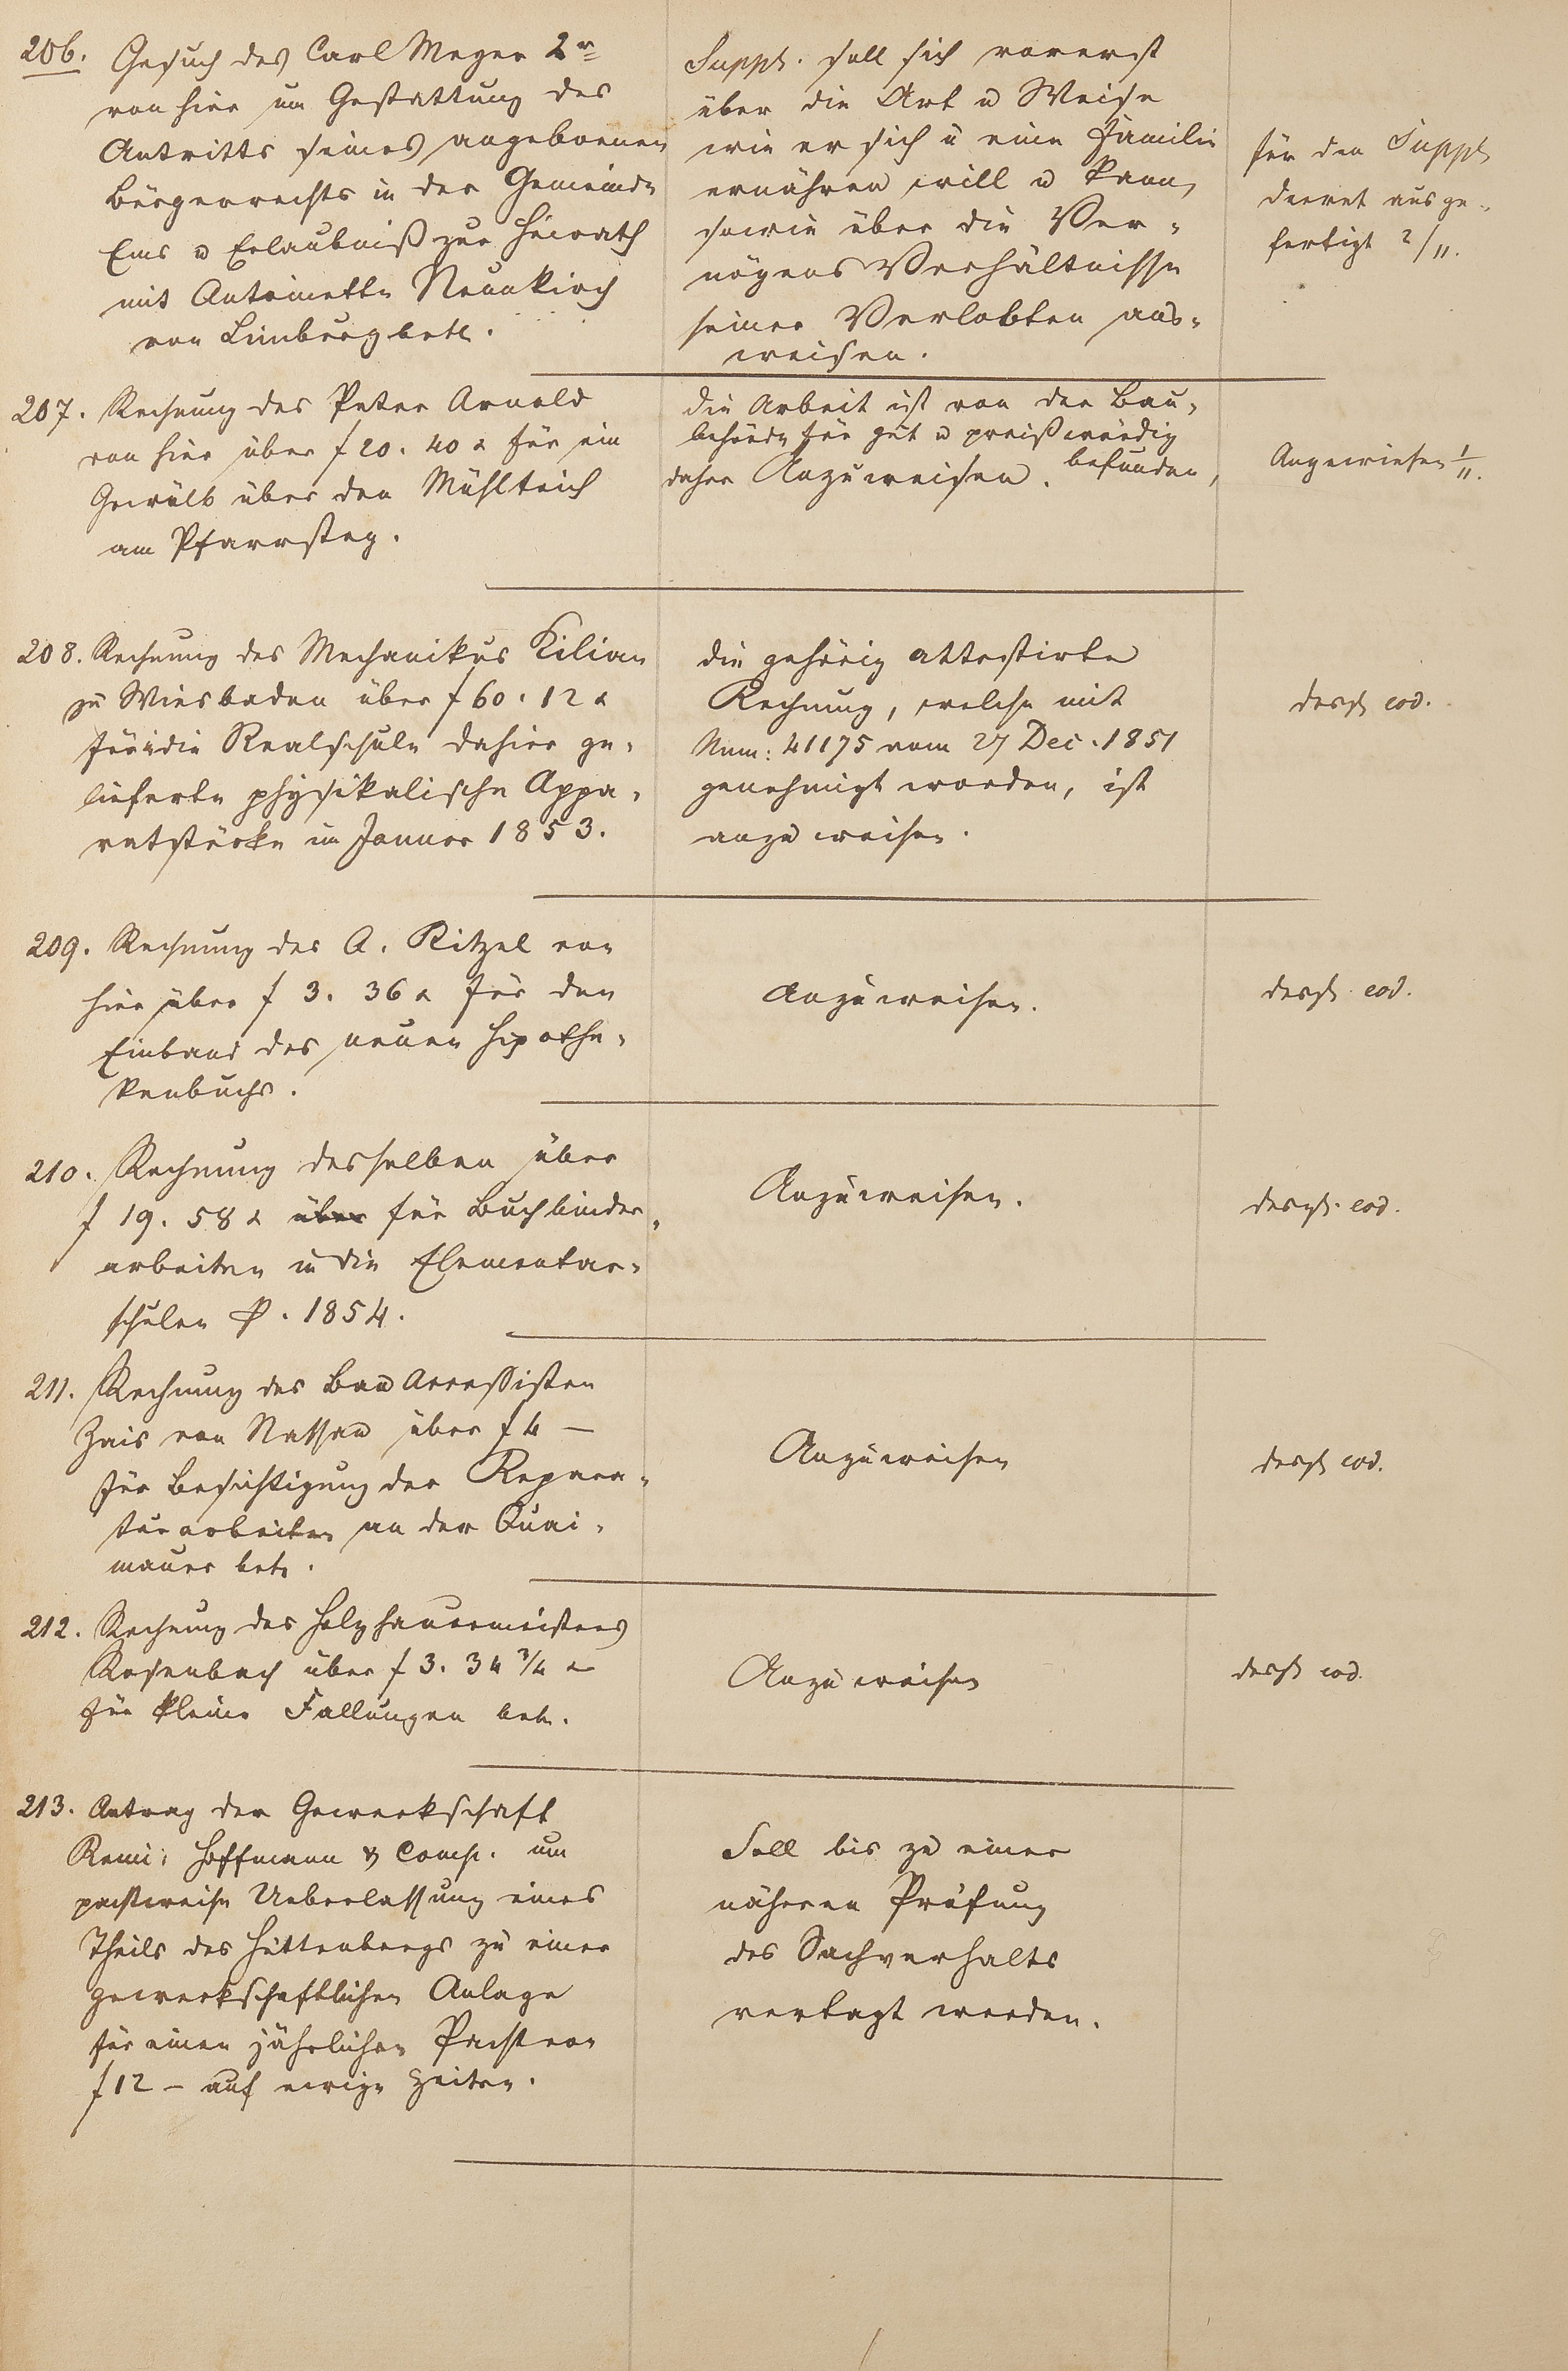 206. Gesuch des Carl Meyer 2r
von hier um Gestattung des
Antritts seines angebornen
Bürgerrechts in der Gemeinde
Ems u Erlaubniß zur Heirath
mit Antoinette Neunkirch
von Limburg betr.
Suppl. soll sich vorerst
über die Art u Weise
wie er sich u eine Familie
ernähren will u kann,
sowie über die Ver-
mögens Verhältnisse
seiner Verlobten aus-
weisen.
für den Suppl
decret ausge-
fertigt 2/11.
207. Rechnung des Peter Arnold
von hier über f 20. 40 x für ein
Gewölb über den Mühlteich
am Pfarrsteg.
die Arbeit ist von der Bau-
behörde für gut u preißwürdig
befunden,
daher Anzuweisen.
Angewiesen 1/11.
208. Rechnung des Mechanikus Kilian
zu Wiesbaden über f 60. 12 x
für die Realschule dahier ge-
lieferte physikalische Appa-
ratstücke im Januar 1853.
die gehörig attestirte
Rechnung, welche mit
Num: 41175 vom 27 Dec. 1851
genehmigt worden, ist
anzuweisen.
desgl eod.
209. Rechnung des A. Ritzel von
hier über f 3. 36 x für den
Einband des neuen Hipothe-
kenbuchs.
Anzuweisen.
desgl. eod.
210. Rechnung desselben über
f 19. 58 x über für Buchbinder-
arbeiten in die Elementar-
schulen p. 1854.
Anzuweisen.
desgl. eod.
211. Rechnung des Bau Accessisten
Zais von Nassau über f 4 —
für Besichtigung der Repara-
turarbeiten an der Quai-
mauer betr.
Anzuweisen
desgl eod.
212. Rechnung des Holzhauermeisters
Rosenbach über f 3. 34 3/4 x
für kleine Fallungen betr.
Anzuweisen
desgl eod.
213. Antrag der Gewerkschaft
Remi, Hoffmann & Comp. um
pachtweise Ueberlassung eines
Theils des Hüttenbergs zu einer
gewerkschaftlichen Anlage
für einen jährlichen Pacht von
f 12 — auf ewige Zeiten.
Soll bis zu einer
näheren Prüfung
des Sachverhalts
vertagt werden.